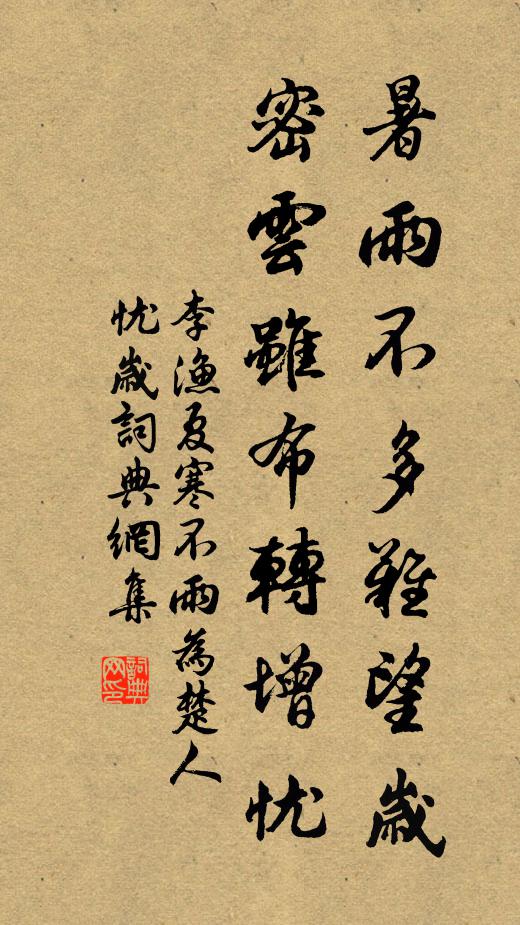 暑雨不多難望歲
密雲雖布轉增忧
李漁夏寒不雨為楚人
忧歲詞典網集
詞典網印